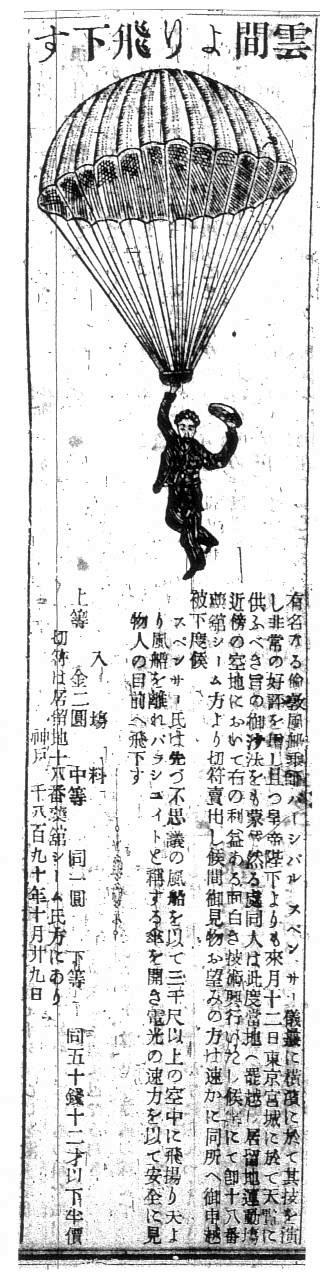 雲間より飛下す
有名なる倫敦風船乗師パーシバル スペンサー儀最に横濱に於て其技を演
し非常の好評を博し且つ皇帝陛下よりも來月十二日東京宮城に於て天覧に
供ふべき旨の御沙汰をも蒙り然る處同人は此度當地へ罷越し居留地運動塲
近傍の空地において右の利益ある面白き技術興行いたし候に て即十八番
舘シーム方より切符賣出し候間御見物お望みの方は速かに同所へ御申越
被下度候
スペンサー氏は先づ不思議の風船を以て三千尺以上の空中に飛揚り夫よ
り風船を離れパラシユイトと稱する傘を開き電光の速力を以て安全に見
物人の目前へ飛下す
入塲料
上等 金二圓 中等 同一圓 下等 同五十錢十二才以下半價
切符は居留地十八番舘シーム氏方にあり
神戸 千八百九十年十月廿九日